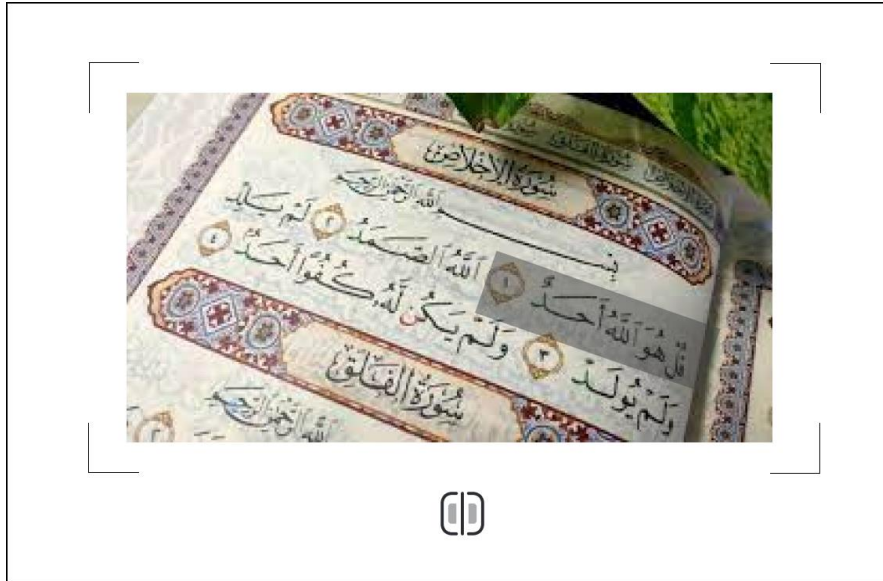 سُورَةُ الإِخْلَاصِ
بِسْمِ اللَّهِ الرَّحْمَٰنِ الرَّحِيمِ
قُلْ هُوَ اللَّهُ أَحَدٌ ١ اللَّهُ الصَّمَدُ ٢ لَمْ يَلِدْ
وَلَمْ يُولَدْ ٣ وَلَمْ يَكُن لَّهُ كُفُوًا أَحَدٌ ٤
سُورَةُ الْفَلَقِ
اللَّهِ الرَّحْمَٰنِ الرَّحِيمِ
٢